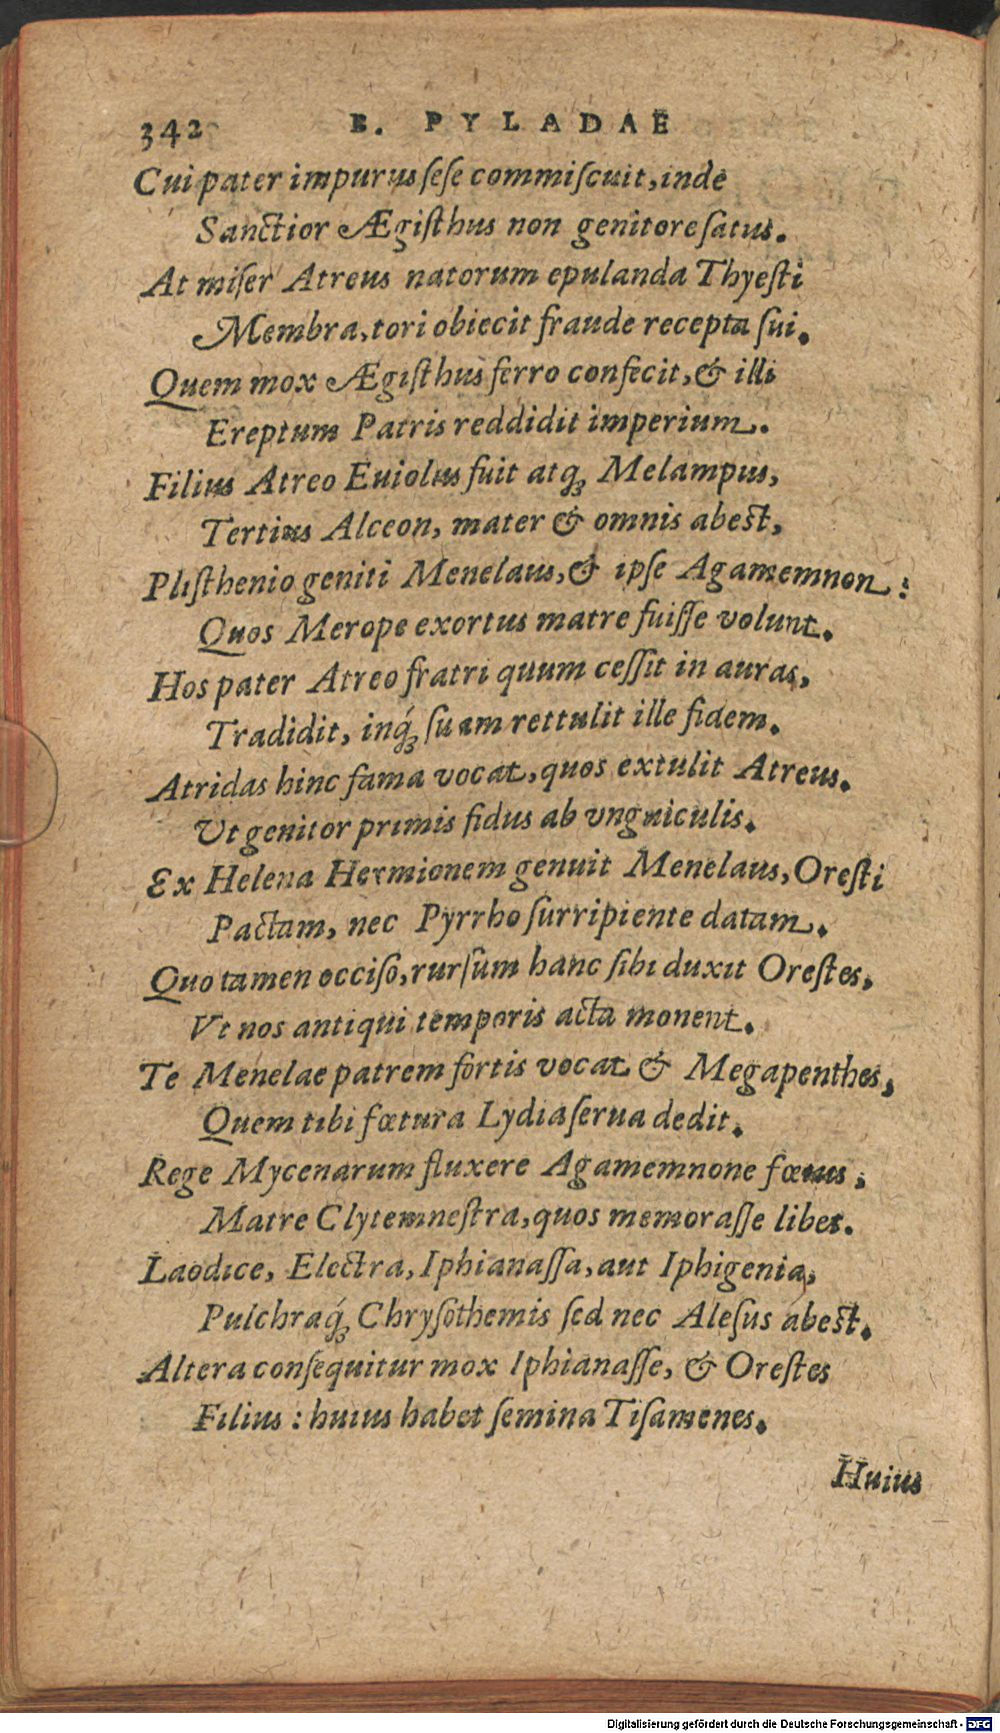 342 B. PYLADAE
Cui pater impurus seſe commiſcuit, inde
Sanctior Ægiſthus non genitore ſatus.
At miſer Atreus natorum epulanda Thyeſti
Membra, tori obiecit fraude recepta ſui.
Quem mox Ægiſthus ferro confecit, & illi
Ereptum Patris reddidit imperium.
Filius Atreo Euiolus fuit atq; Melampus,
Tertius Alceon, mater & omnis abest,
Pliſthenio geniti Menelaus, & ipſe Agamemnon:
Quos Merope exortus matre fuiſſe volunt.
Hos pater Atreo fratri quum ceſſit in auras,
Tradidit, inq́; ſuam rettulit ille fidem.
Atridas hinc fama vocat, quos extulit Atreus.
Vt genitor primis fidus ab vnguiculis.
Ex Helena Hermionem genuit Menelaus, Oreſti
Pactam, nec Pyrrho ſurripiente datam.
Quo tamen occiſo, rurſum hanc ſibi duxit Oreſtes,
Vt nos antiqui temporis acta monent.
Te Menelae patrem fortis vocat & Megapenthes,
Quem tibi fœtura Lydia ſerua dedit.
Rege Mycenarum fluxere Agamemnone fœtus;
Matre Clytemneſtra, quos memoraſſe libet.
Laodice, Electra, Iphianaſſa, aut Iphigenia,
Pulchraq́; Chryſothemis ſed nec Aleſus abest.
Altera conſequitur mox Iphianaſſe, & Oreſtes
Filius: huius habet ſemina Tiſamenes.
Huius
Digitalisierung gefördert durch die Deutsche Forschungsgemeinschaft - DFG